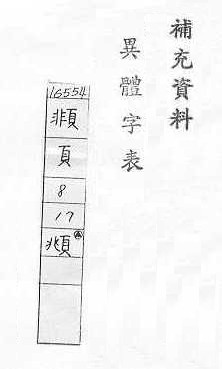 補充資料
異體字表
16554
頁
8
17
頫